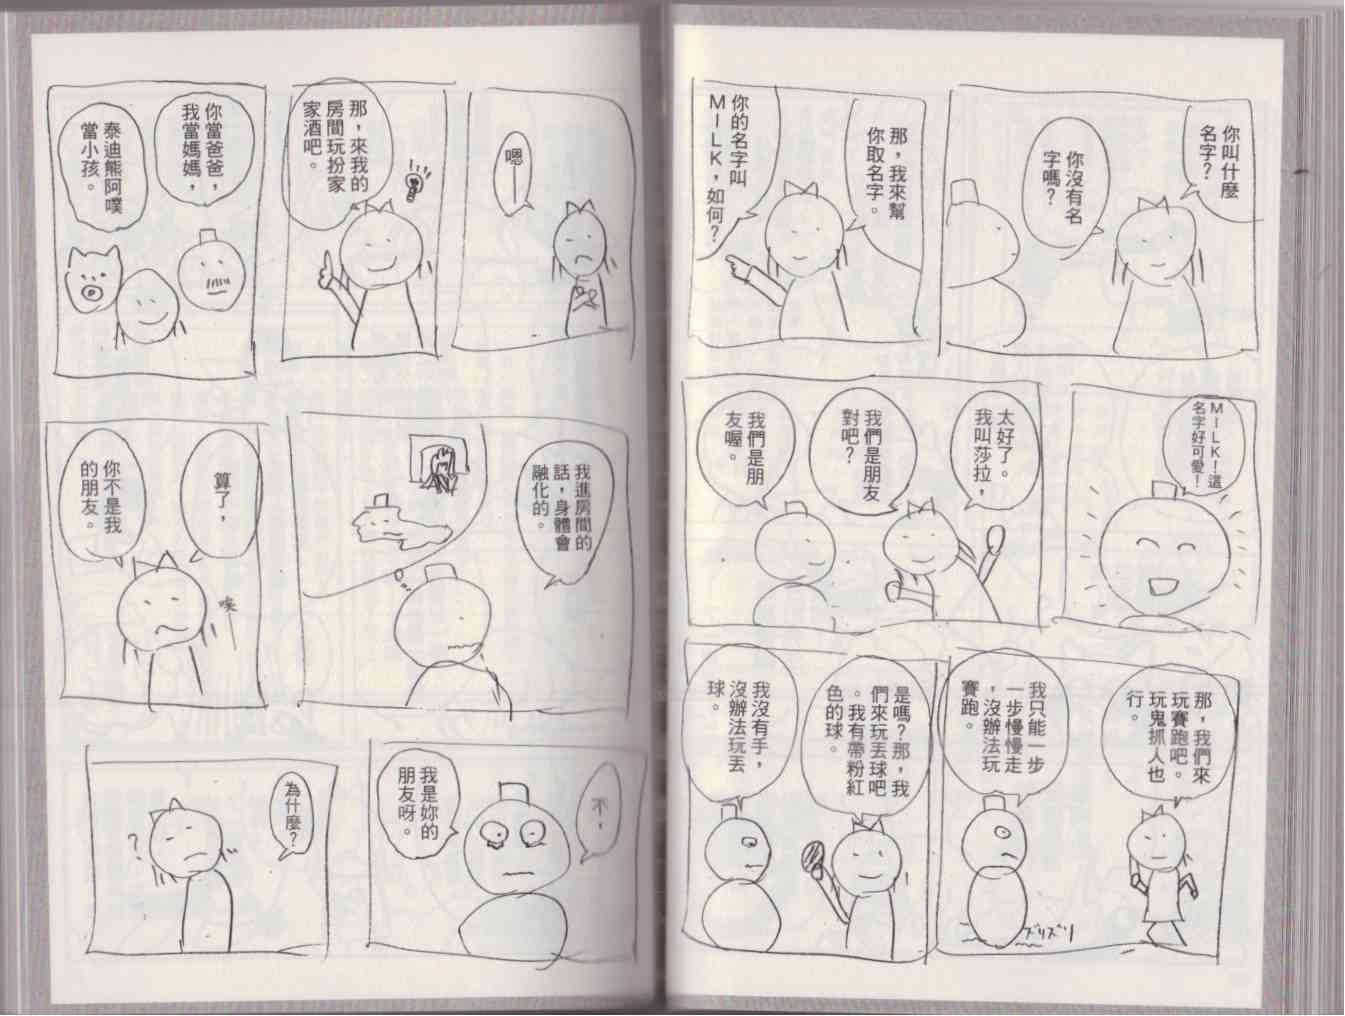 你叫什麼
名字?
你沒有名
字嗎?
那,我來幫
你取名字。
你的名字叫
MILK,如何?
MILK!這
名字好可愛!
太好了。
我叫莎拉,
我們是朋友
對吧?
我們是朋
友喔。
那,我們來
玩賽跑吧。
玩鬼抓人也
行。
我只能一步
一步慢慢走
,沒辦法玩
賽跑。
ズリズリ
是嗎?那,我
們來玩丟球吧
。我有帶粉紅
色的球。
我沒有手,
沒辦法玩丟
球。
嗯
那,來我的
房間玩扮家
家酒吧。
你當爸爸,
我當媽媽,
泰迪熊阿噗
當小孩。
我進房間的
話,身體會
融化的。
算了,
你不是我
的朋友。
唉
不,
我是妳的
朋友呀。
為什麼?
?